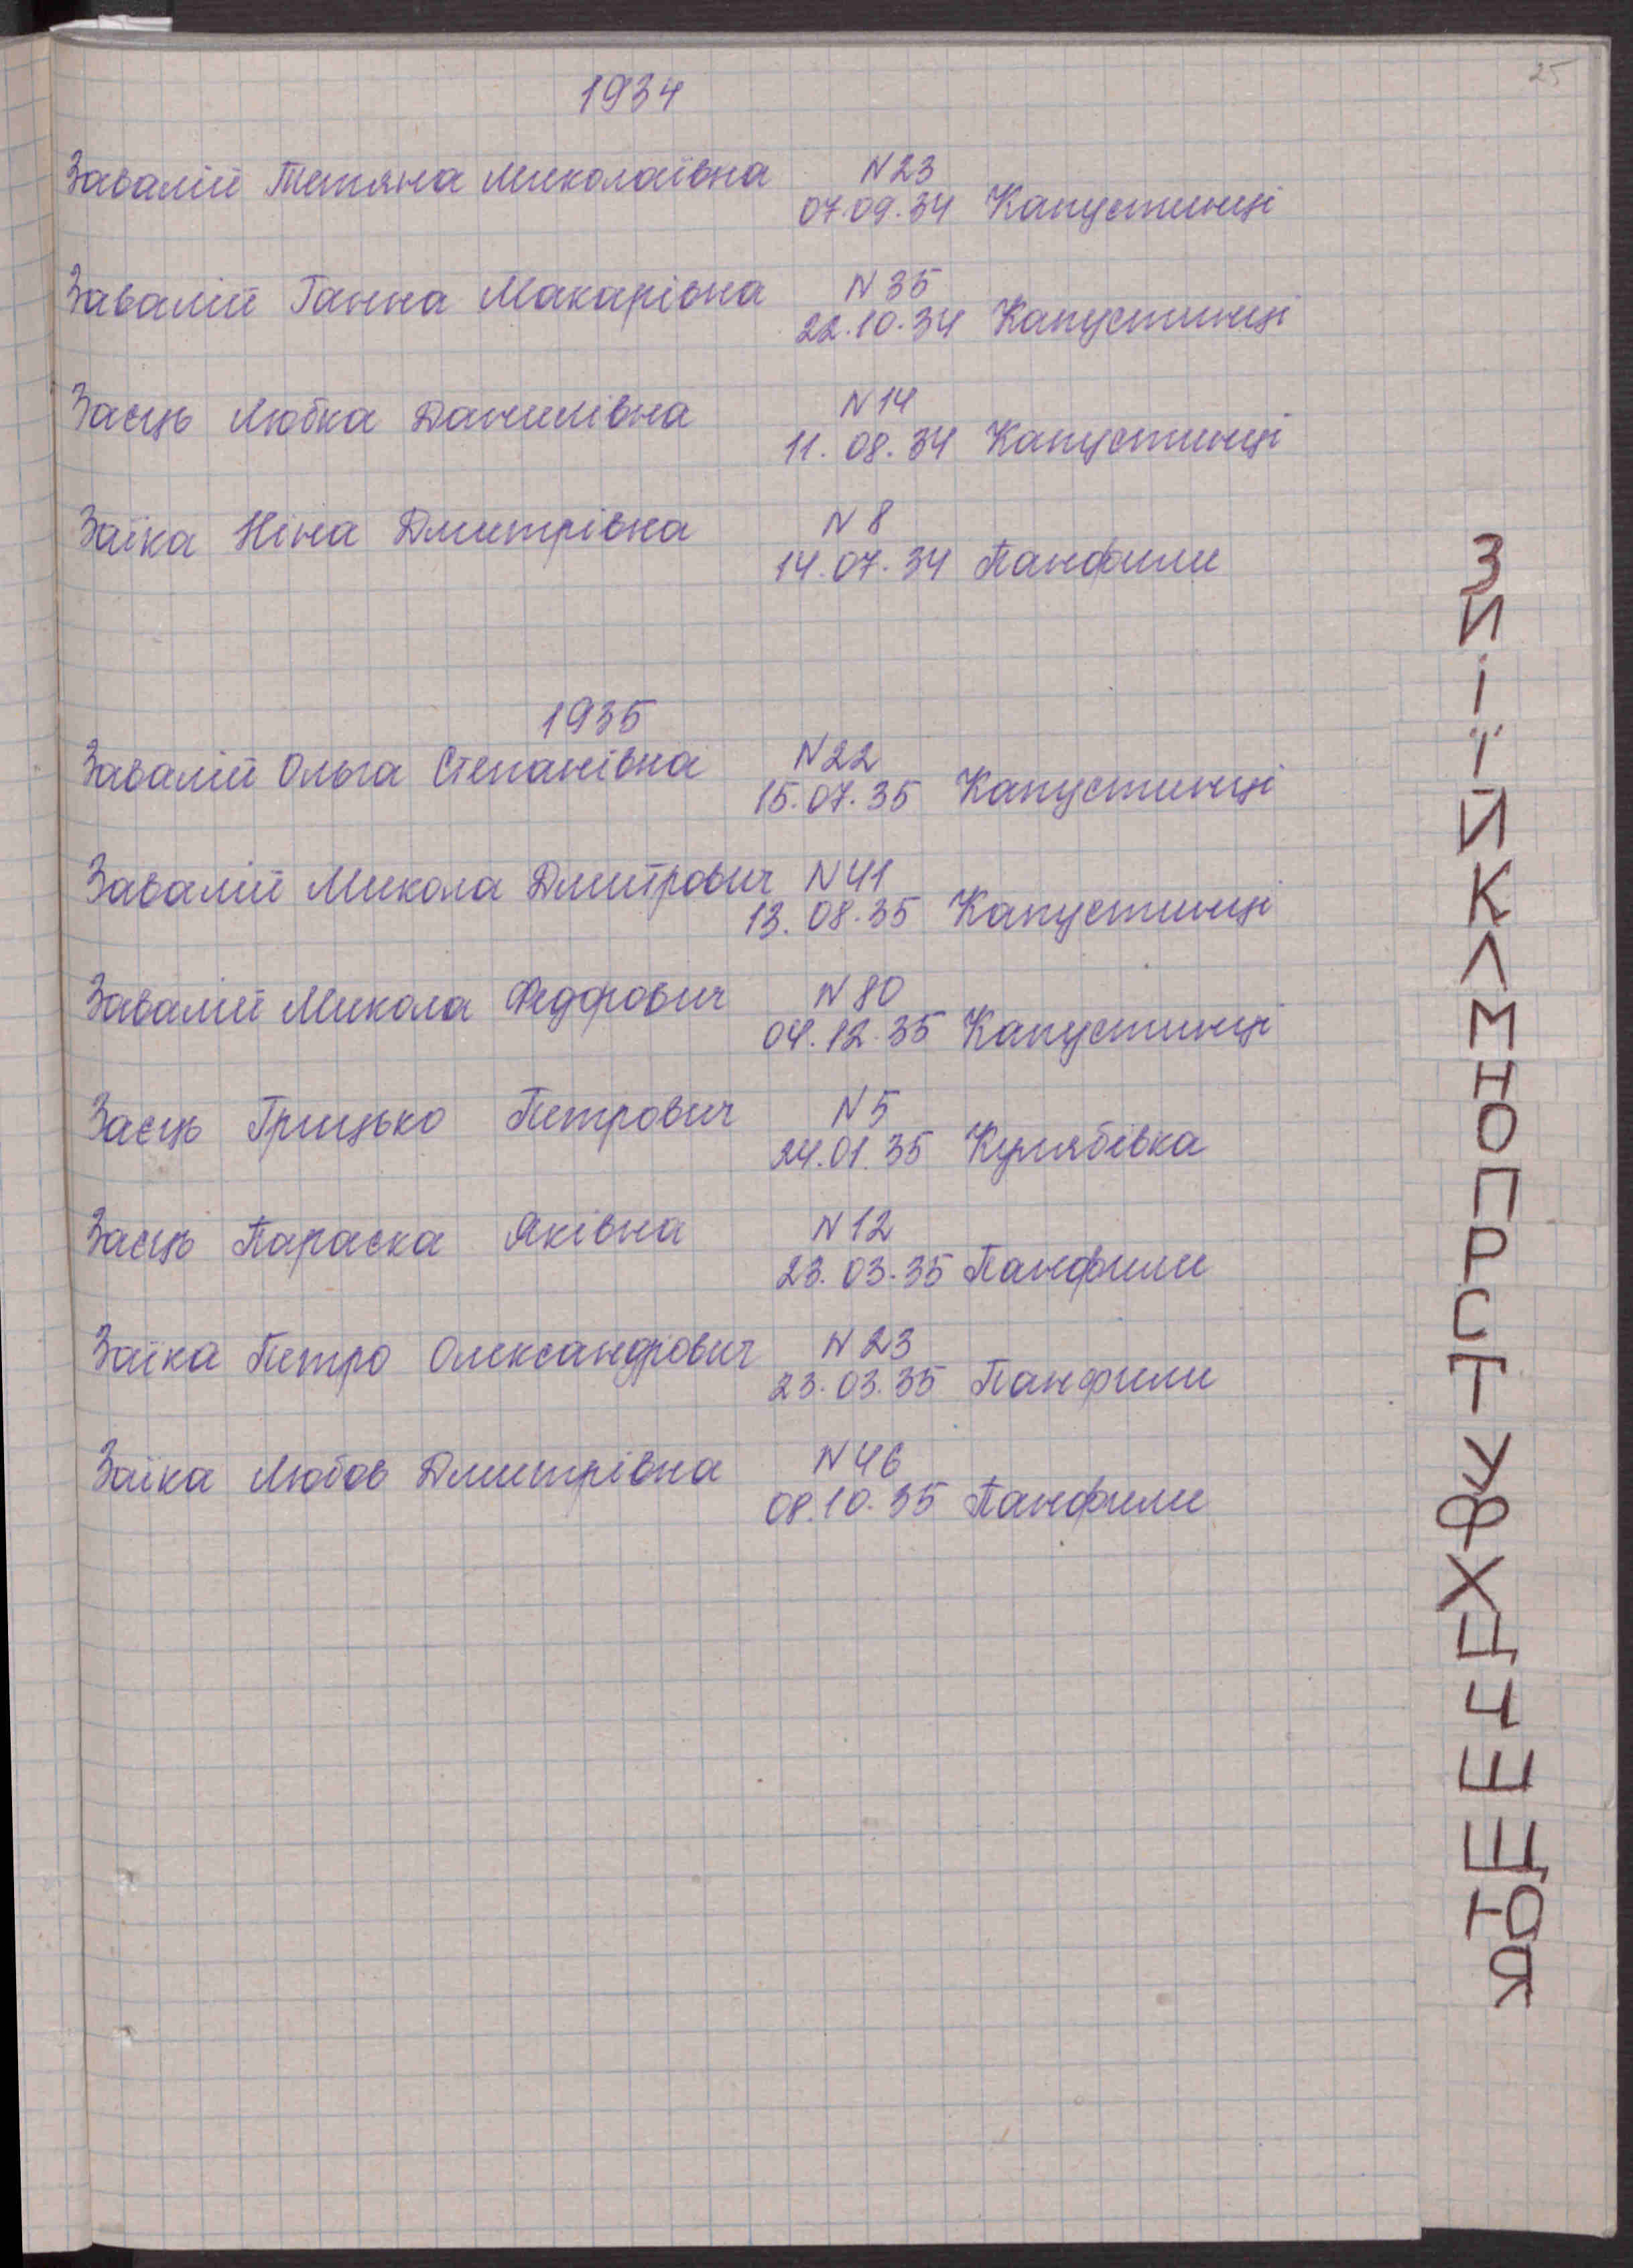 25
1934
Завалій Тетяна Миколаївна N23
07.09.34 Капустинці
Завалій Ганна Макарівна N35
22.10.34 Капустинці
Заєць Любка Данилівна N14
11.08.34 Капустинці
Заїка Ніна Дмитрівна N8
14.07.34 Панфили
1935
Завалій Ольга Степанівна N22
15.07.35 Капустинці
Завалій Микола Дмитрович N41
13.08.35 Капустинці
Завалій Микола Федорович N80
04.12.35 Капустинці
Заєць Грицько Петрович N5
24.01.35 Кулябівка
Заєць Параска Яківна N12
23.03.35 Панфили
Заїка Петро Олександрович N23
23.03.35 Панфили
Заїка Любов Дмитрівна N46
08.10.35 Панфили
З
И
І
Ї
Й
К
Л
М
Н
О
П
Р
С
Т
У
Ф
Х
Ц
Ч
Ш
Щ
Ю
Я